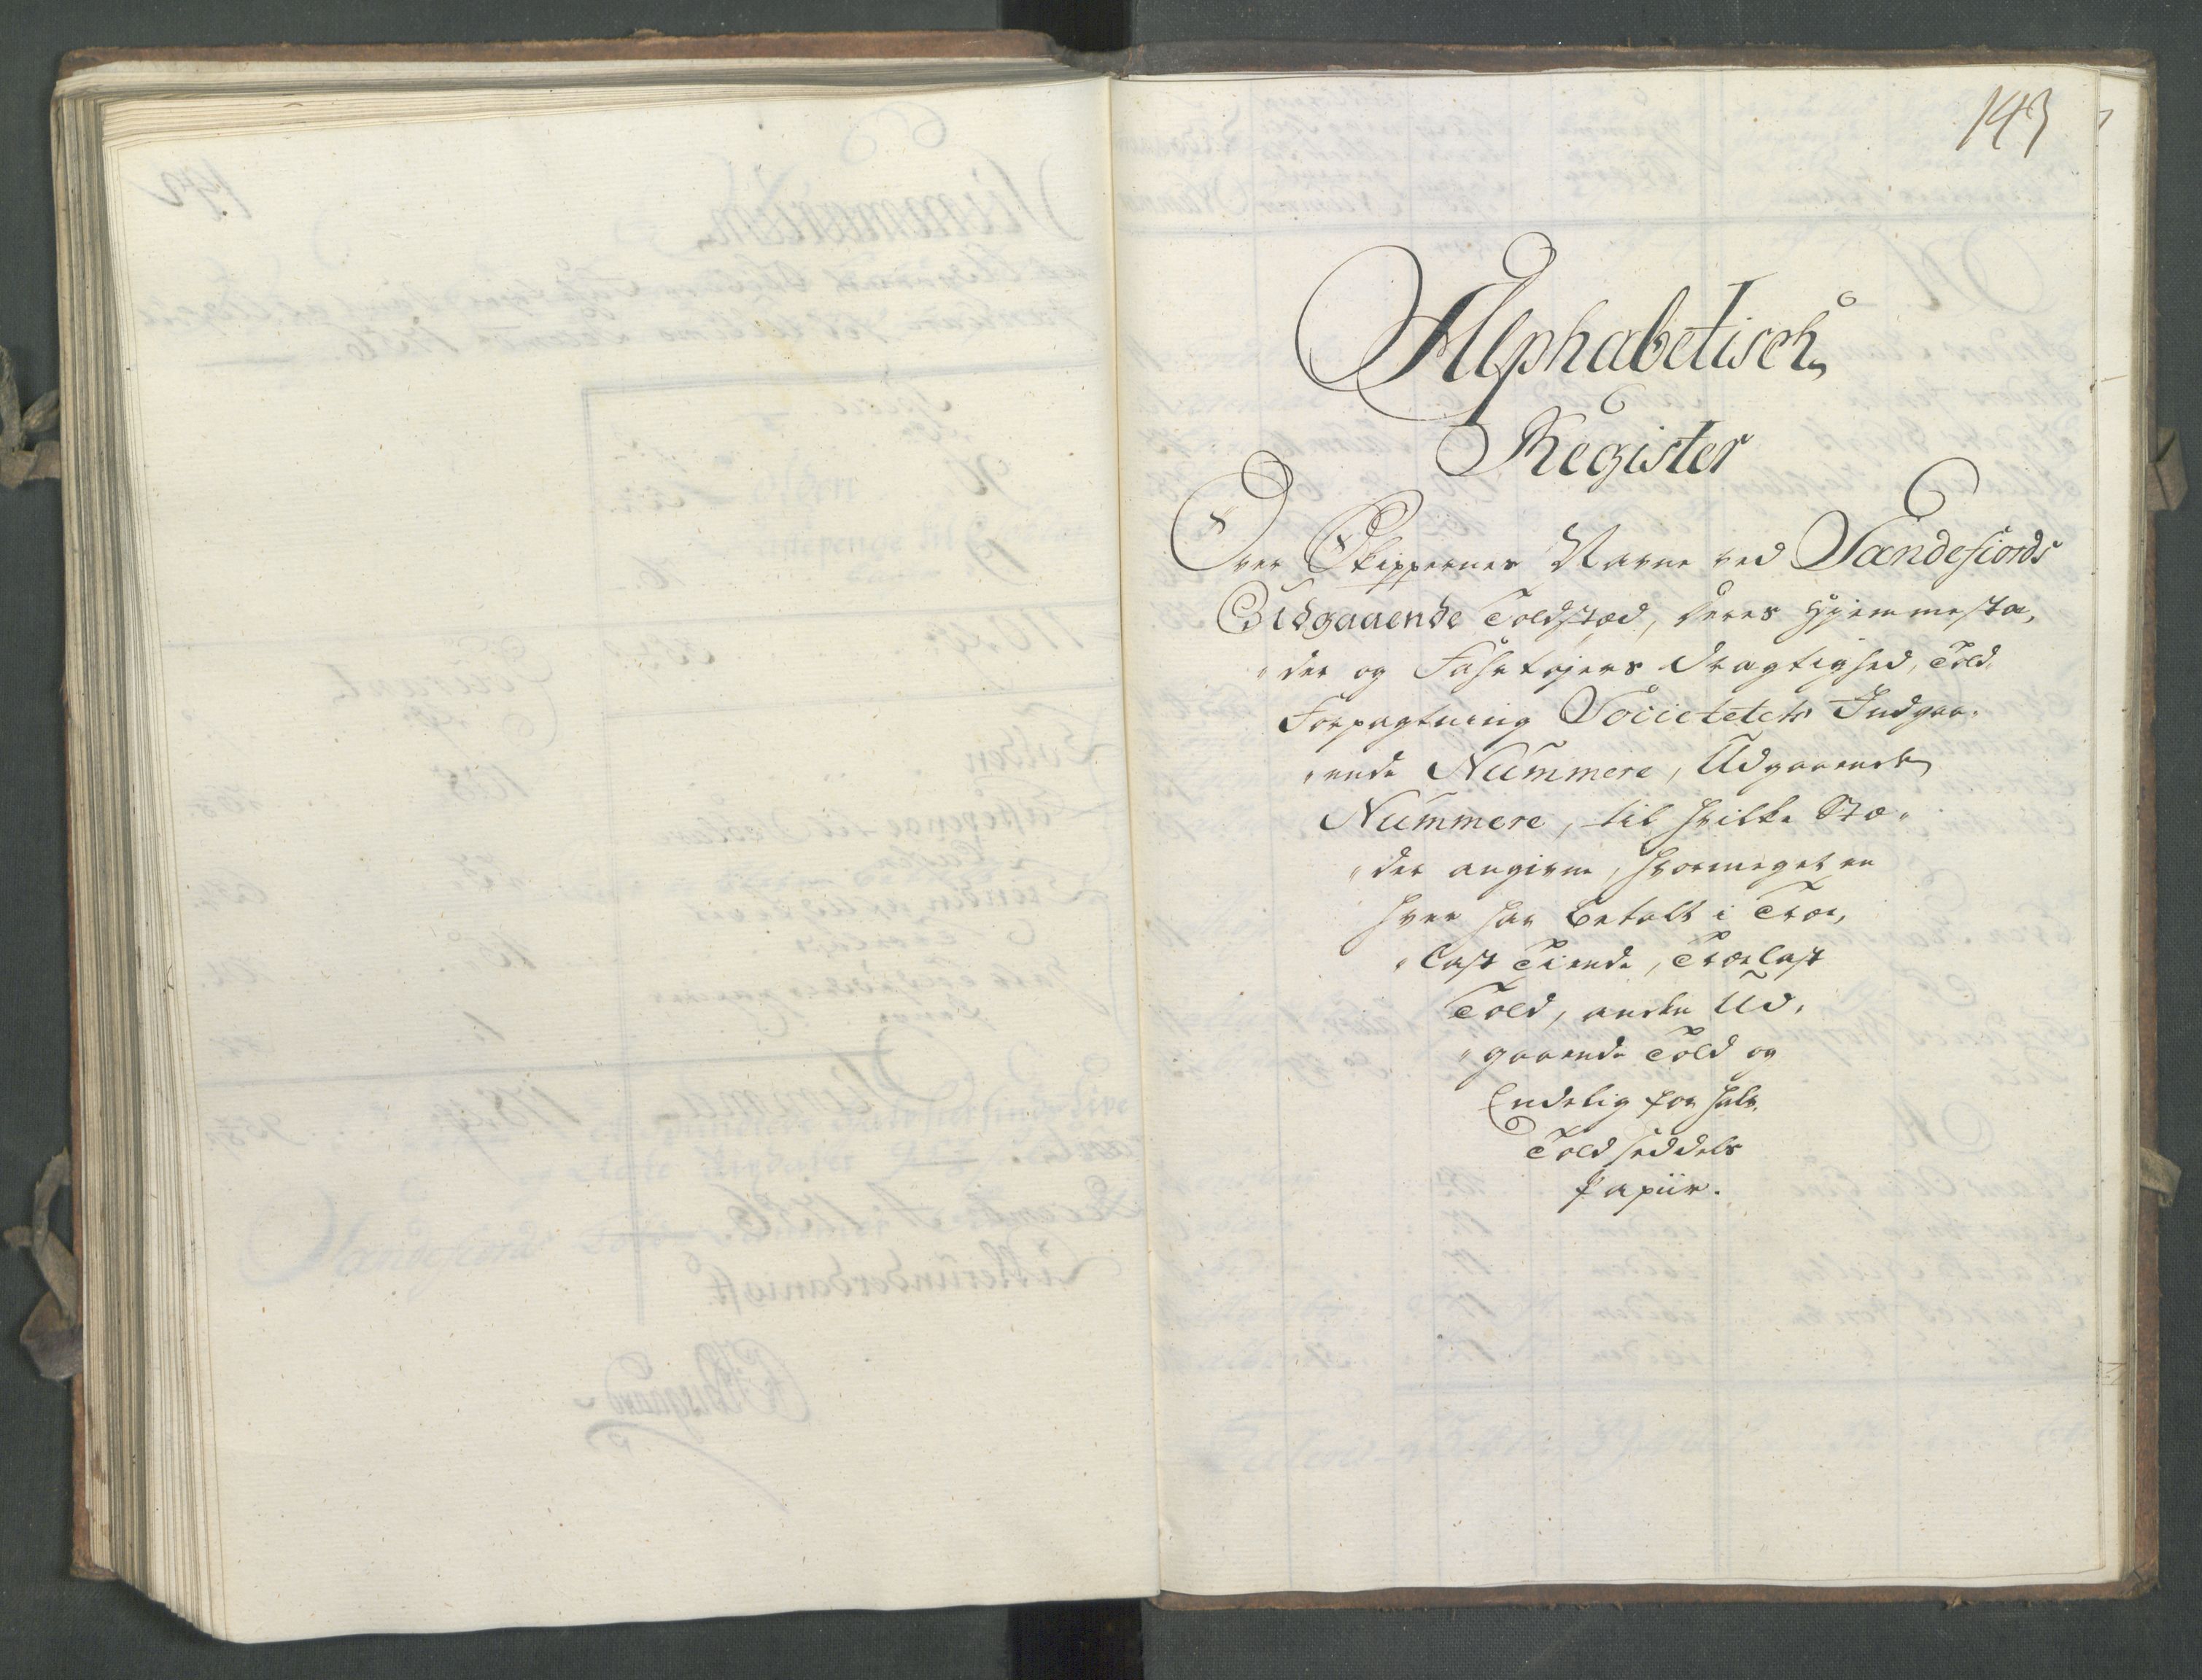 143
Alphabetisch
Register
Over Skippernes Navne ved Sandefiords
Udgaaende Toldsted, deres Hjemmestæ,
"der og Fahrtøjers Drægtighed, Told
Forpagtning Societetets Indgaa,
"ende Nummere, Udgaaende
Nummere, til hvilke Stæ,
"der angivne, hvormeget en
hver har betalt i Træ,
"last Tiende, Trælast
Told, anden Ud,
"gaaende Told og
Endelig for halv
Told seddels
Papiir.